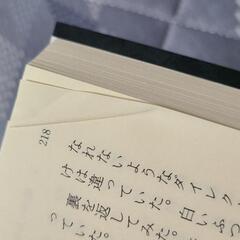 218
なれないようなダイレク
けは違っていた。白いふっ
裏を返してみた。
っていた。